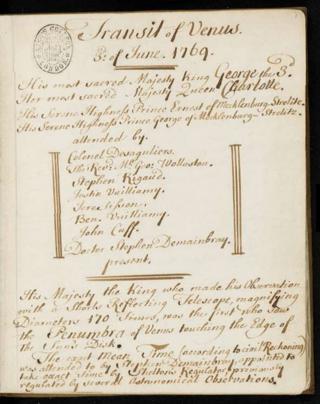 Transit of Venus.
3.d of June 1769.
His most sacred Majesty King George the 3.d
Her most sacred Majesty Queen Charlotte.
His Serene Highness Prince Ernest of Mecklenburg Strelitz.
His Serene Highness Prince George of Mecklenburg-Strelitz.
attended by.
Colonel Desaguliers.
The Rev.d Mr. Geo: Wollaston.
Stephen Rigaud.
Justin Vulliamy.
Jere: Sisson.
Ben. Vulliamy.
John Cuff.
Doctor Stephen Demainbray.
present.
His Majesty the King who made his Observation
with a Short's Reflecting Telescope, magnifying
Diameters 170 Times, was the first who saw
the Penumbra of Venus touching the Edge of
the Sun's Disk.
The exact mean Time (according to civil Reckoning)
was attended to by Stephen Demainbray, appointed to
take exact Time by Shelton's Regulator, previously
regulated by several Astronomical Observations.